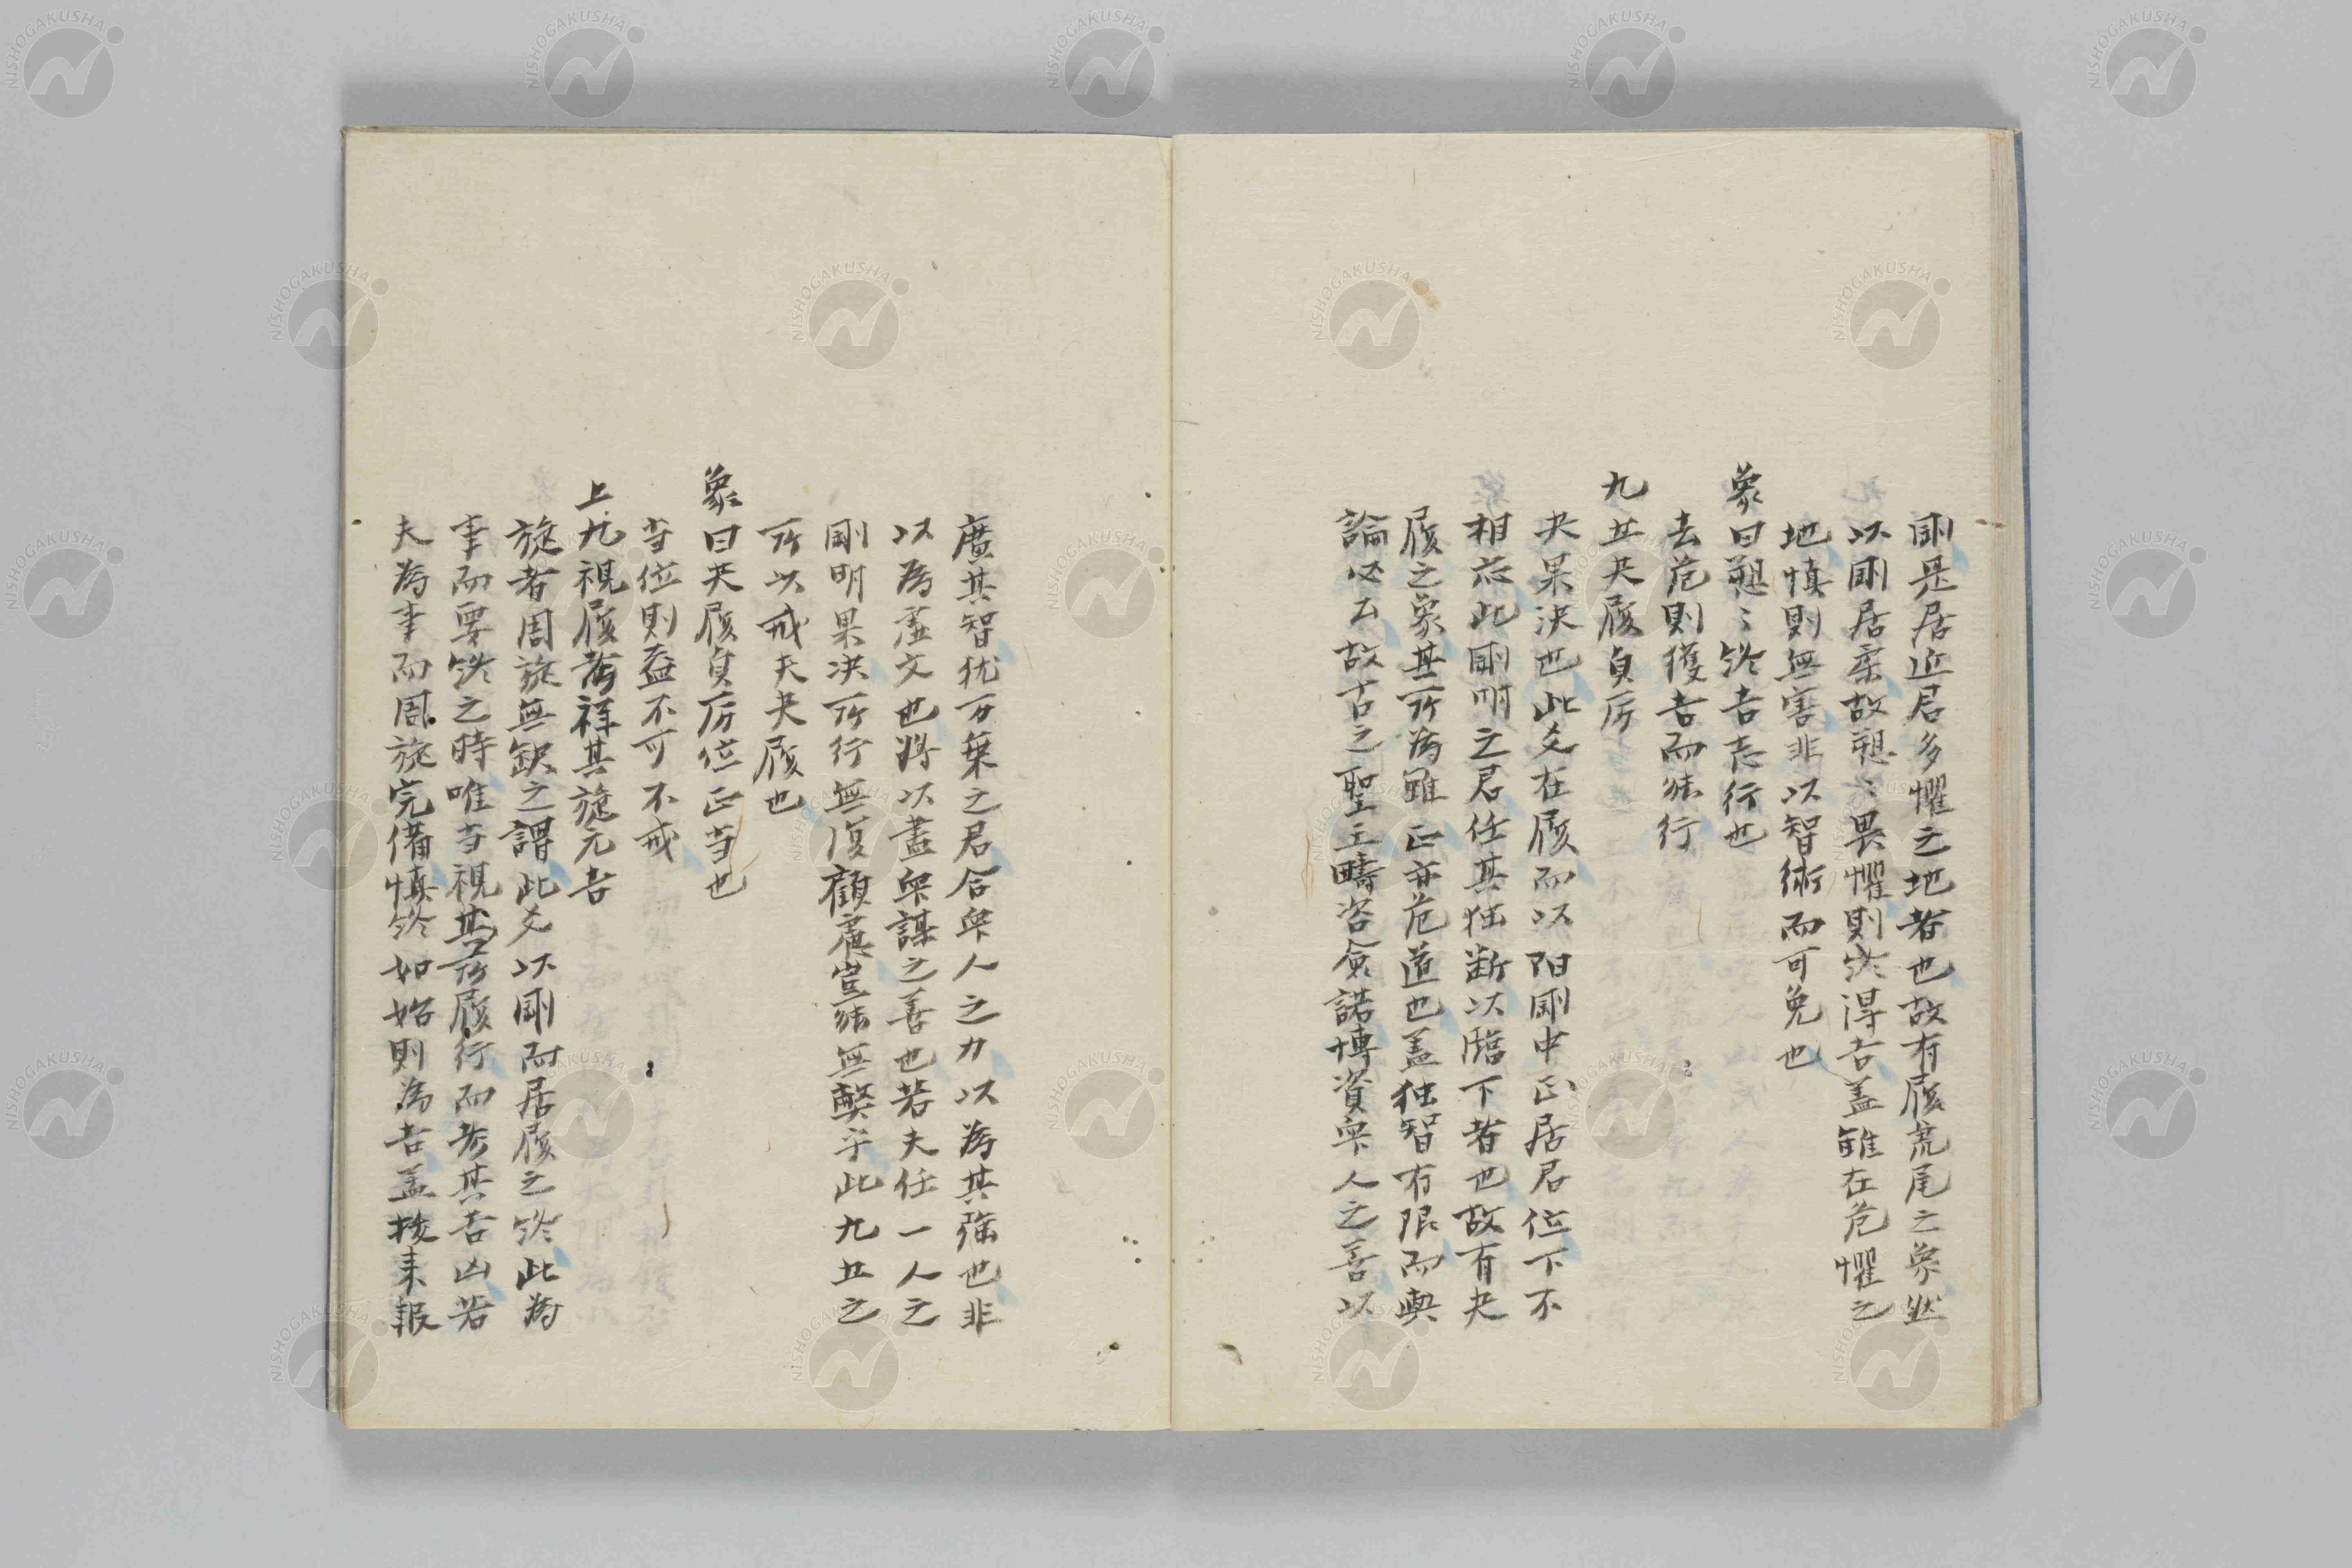 剛是居近君多懼之地者也故有履虎尾之象然
以剛居柔故愬〻畏懼則終得吉蓋雖在危懼之
地慎則無害非以智術而可免也
象曰愬〻終吉志行也
去危則獲吉而能行
九五夬履貞厉
夬果決也此爻在履而以阳剛中正居君位下不
相応此剛明之君任其独断以臨下者也故有夬
履之象其所為雖正亦危道也蓋独智有限而輿
論必公故古之聖王疇咨僉諾博資衆人之善以
廣其智犹万乗之君合衆人之力以為其強也非
以為虚文也将以盡衆謀之善也若夫任一人之
剛明果决所行無復顧慮豈能無弊乎此九五之
所以戒夫夬履也
象曰夬履貞厉位正当也
当位則益不可不戒
上九視履考祥其旋元吉
旋者周旋無缺之謂此爻以剛而居履之終此為
事而要終之時唯当視其所履行而考其吉凶若
夫為事而周旋完備慎終如始則為吉蓋 耒報
NISHOGAKUSHA